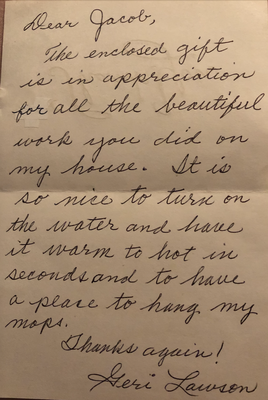 Dear Jacob,
The enclosed gift
is in appreciation
for all the beautiful
work you did on
my house. It is
so nice to turn on
the water and have
it warm to hot in
seconds and to have
a place to hang my
mops.
Thanks again!
Geri Lawson